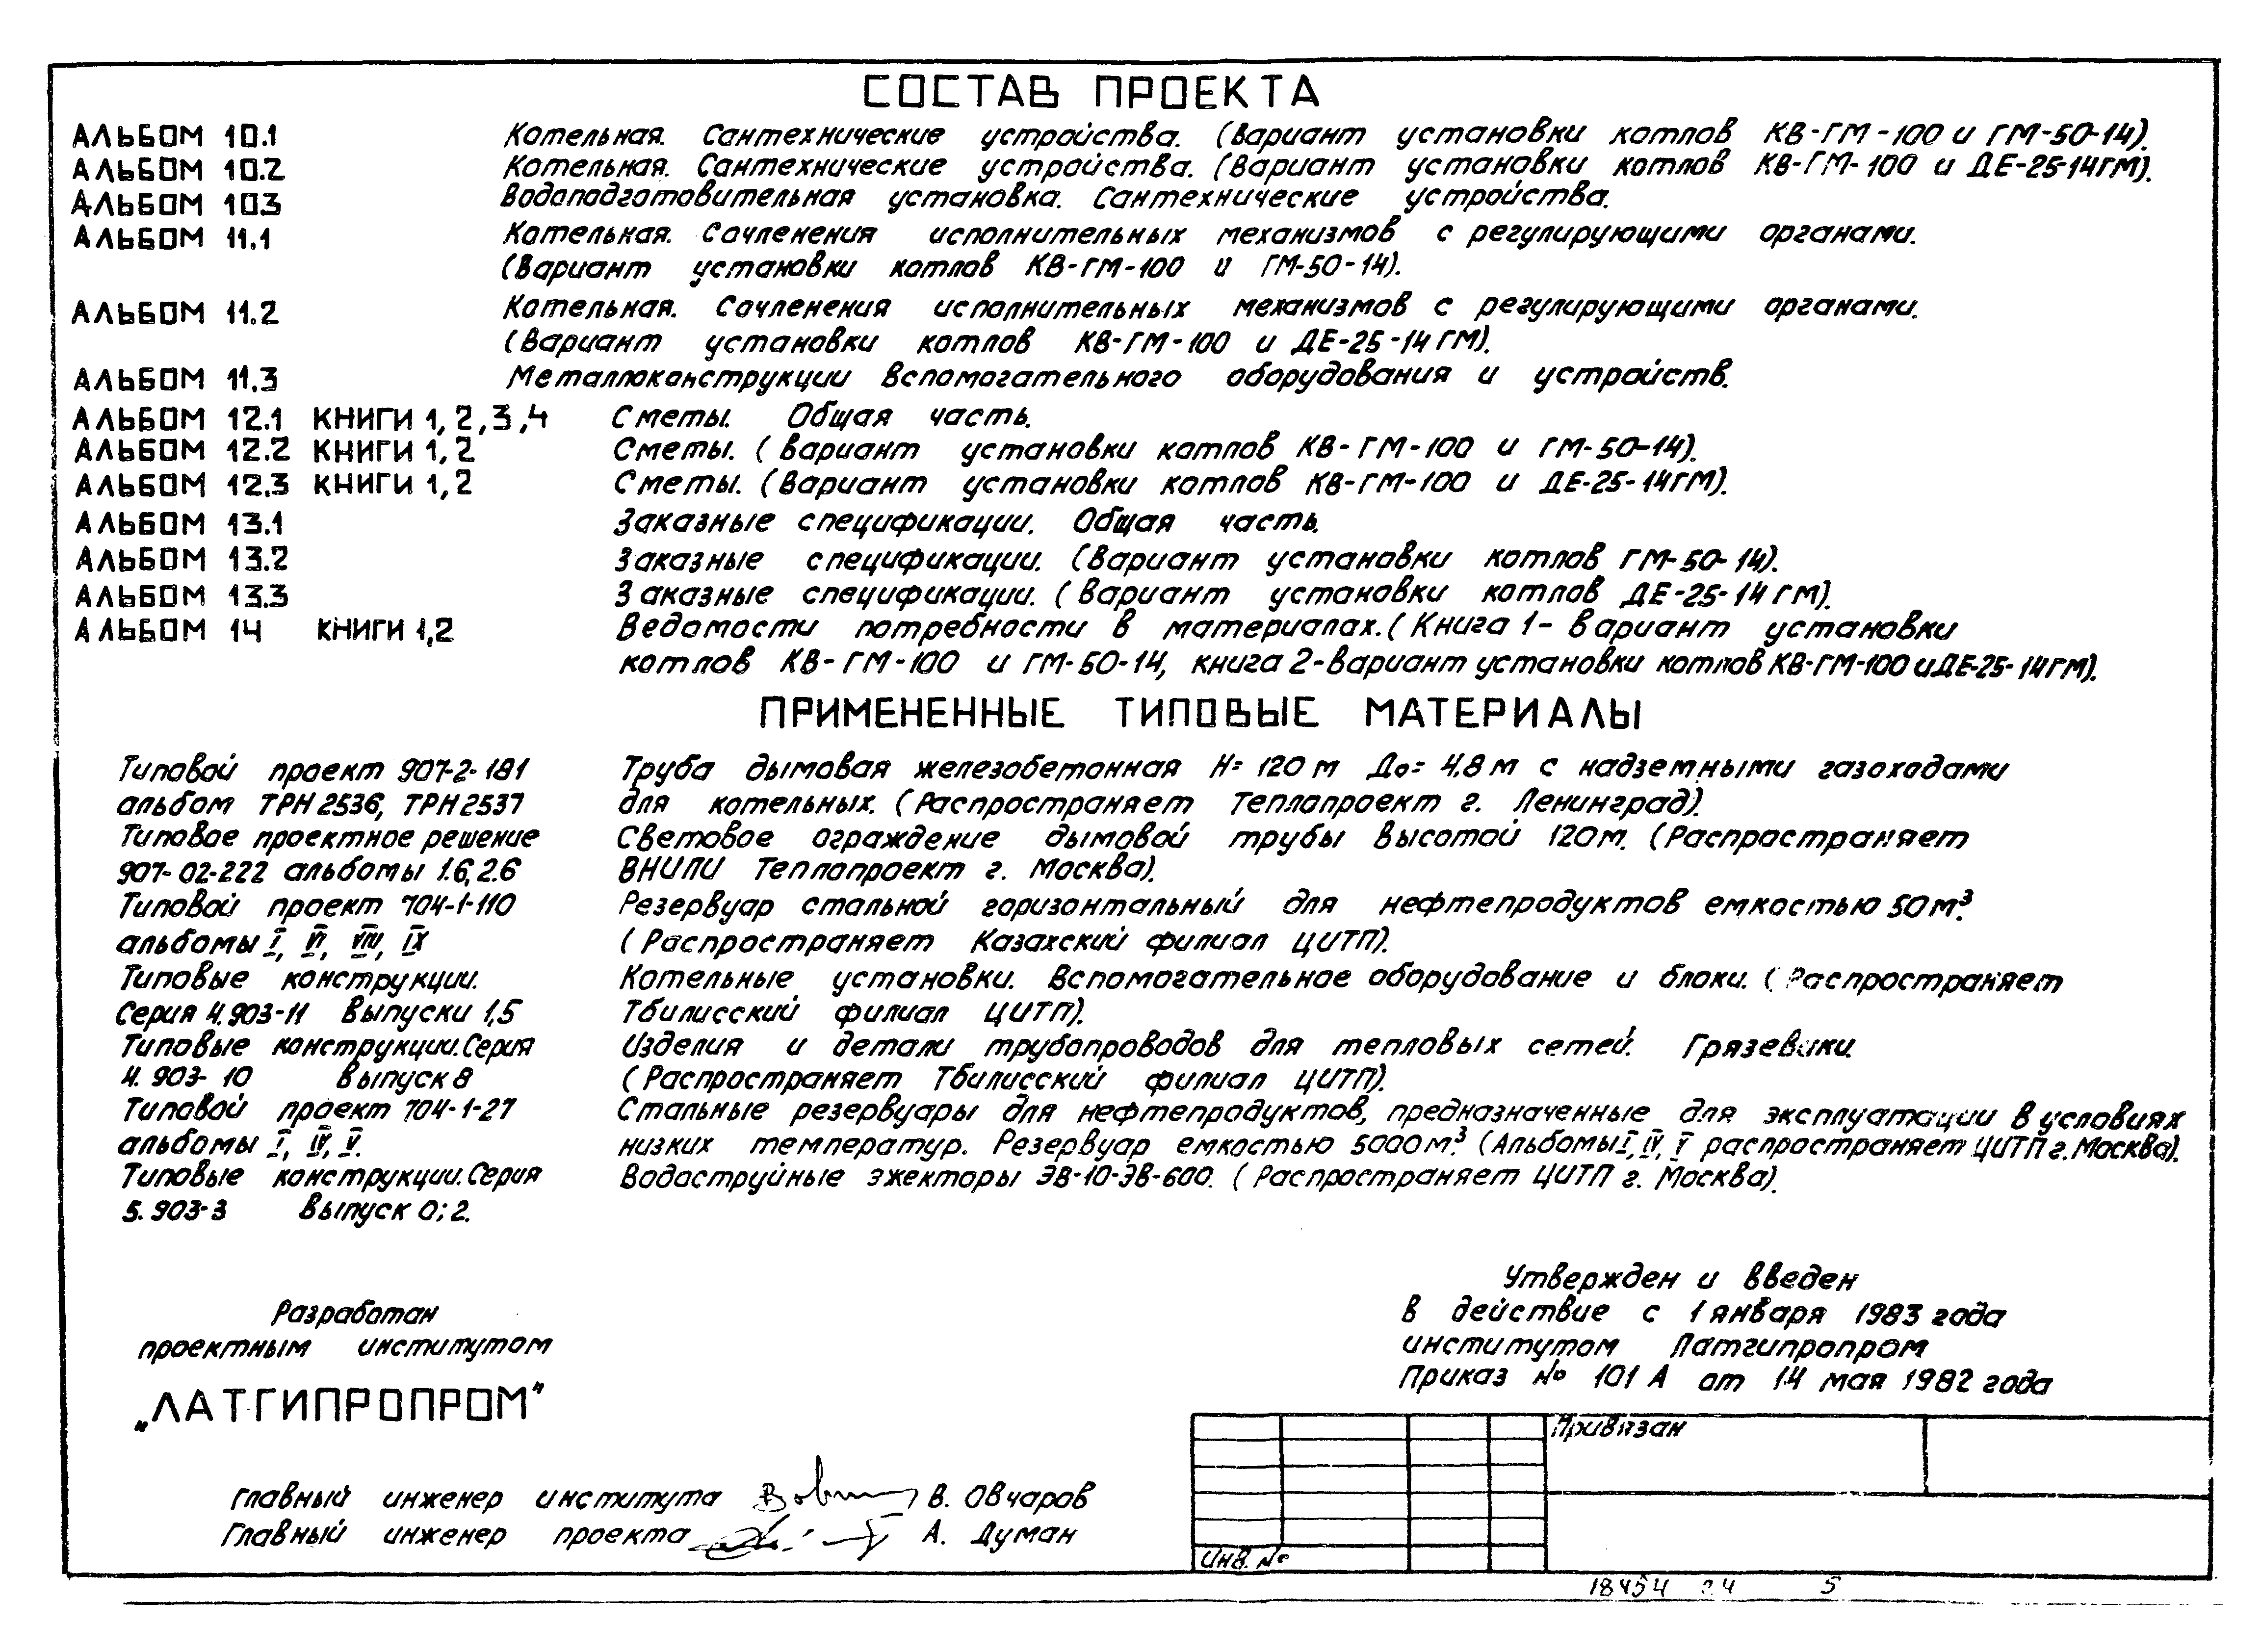 СОСТАВ ПРОЕКТА
АЛЬБОМ 10.1 Котельная. Сантехнические устройства. (Вариант установки котлов КВ-ГМ-100 и ГМ-50-14).
АЛЬБОМ 10.2 Котельная. Сантехнические устройства. (Вариант установки котлов КВ-ГМ-100 и ДЕ-25-14ГМ).
АЛЬБОМ 10.3 Водоподготовительная установка. Сантехнические устройства.
АЛЬБОМ 11.1 Котельная. Сочленения исполнительных механизмов с регулирующими органами.
(Вариант установки котлов КВ-ГМ-100 и ГМ-50-14).
АЛЬБОМ 11.2 Котельная. Сочленения исполнительных механизмов с регулирующими органами.
(Вариант установки котлов КВ-ГМ-100 и ДЕ-25-14ГМ).
АЛЬБОМ 11.3 Металлоконструкции вспомогательного оборудования и устройств.
АЛЬБОМ 12.1 КНИГИ 1, 2, 3, 4 Сметы. Общая часть.
АЛЬБОМ 12.2 КНИГИ 1, 2 Сметы. (Вариант установки котлов КВ-ГМ-100 и ГМ-50-14).
АЛЬБОМ 12.3 КНИГИ 1, 2 Сметы. (Вариант установки котлов КВ-ГМ-100 и ДЕ-25-14ГМ).
АЛЬБОМ 13.1 Заказные спецификации. Общая часть.
АЛЬБОМ 13.2 Заказные спецификации. (Вариант установки котлов ГМ-50-14).
АЛЬБОМ 13.3 Заказные спецификации. (Вариант установки котлов ДЕ-25-14ГМ).
АЛЬБОМ 14 КНИГИ 1,2 Ведомости потребности в материалах. (Книга 1- Вариант установки
котлов КВ-ГМ-100 и ГМ-50-14, книга 2-Вариант установки котлов КВ-ГМ-100 и ДЕ-25-14ГМ).
ПРИМЕНЕННЫЕ ТИПОВЫЕ МАТЕРИАЛЫ
Типовой проект 907-2-181 Труба дымовая железобетонная Н= 120м До= 4.8м с надземными газоходами
альбом ТРН2536, ТРН2537 для котельных. (Распространяет Теплопроект г. Ленинград).
Типовое проектное решение Световое ограждение дымовой трубы высотой 120м. (Распространяет
907-02-222 альбомы 1.6, 2.6 ВНИПИ Теплопроект г. Москва).
Типовой проект 704-1-110 Резервуар стальной горизонтальный для нефтепродуктов емкостью 50м³.
альбомы I, VI, VIII, IX (Распространяет Казахский филиал ЦИТП).
Типовые конструкции. Котельные установки. Вспомогательное оборудование и блоки. (Распространяет
Серия 4.903-11 Выпуски 1,5 Тбилисский филиал ЦИТП).
Типовые конструкции. Серия Изделия и детали трубопроводов для тепловых сетей. Грязевики.
4.903-10 Выпуск 8 (Распространяет Тбилисский филиал ЦИТП).
Типовой проект 704-1-27 Стальные резервуары для нефтепродуктов, предназначенные для эксплуатации в условиях
альбомы I, IV, V. низких температур. Резервуар емкостью 5000м³. (Альбомы I, IV, V распространяет ЦИТП г. Москва).
Типовые конструкции. Серия Водоструйные эжекторы ЭВ-10-ЭВ-600. (Распространяет ЦИТП г. Москва).
5.903-3 Выпуск 0; 2.
Разработан
проектным институтом
„ЛАТГИПРОПРОМ"
Утвержден и введен
в действие с 1 января 1983 года
институтом Латгипропром
Приказ № 101 А от 14 мая 1982 года
Главный инженер института В. Овчаров
Главный инженер проекта А. Думан
Привязан
Инв. №
18454 5